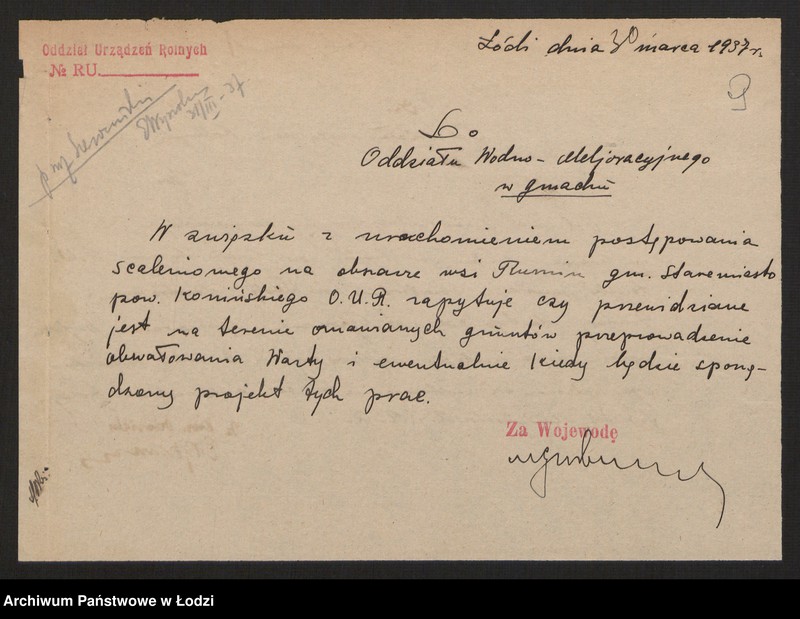 Oddział Urządzeń Rolnych
№ RU.
Łódź dnia 30 marca 1937 r.
9
Do
Oddziału Wodno-Meljoracyjnego
w gmachu
W związku z uruchomieniem postępowania
scaleniowego na obszarze wsi gm. Staremiasto
pow. Konińskiego O.U.R. zapytuje czy przewidziane
jest na terenie omawianych gruntów przeprowadzenie
obwałowania Warty i ewentualnie kiedy będzie sporzą-
dzony projekt tych prac.
Za Wojewodę
Archiwum Państwowe w Łodzi